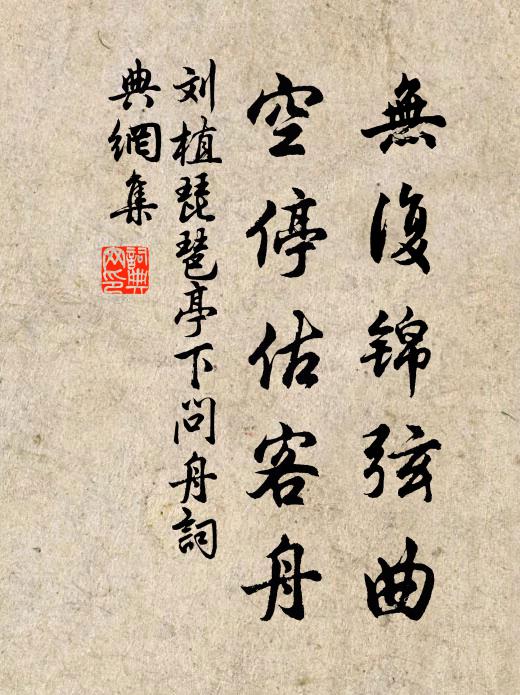 無復锦弦曲
空停估客舟
刘植琵琶亭下問舟詞
典網集
詞典網印